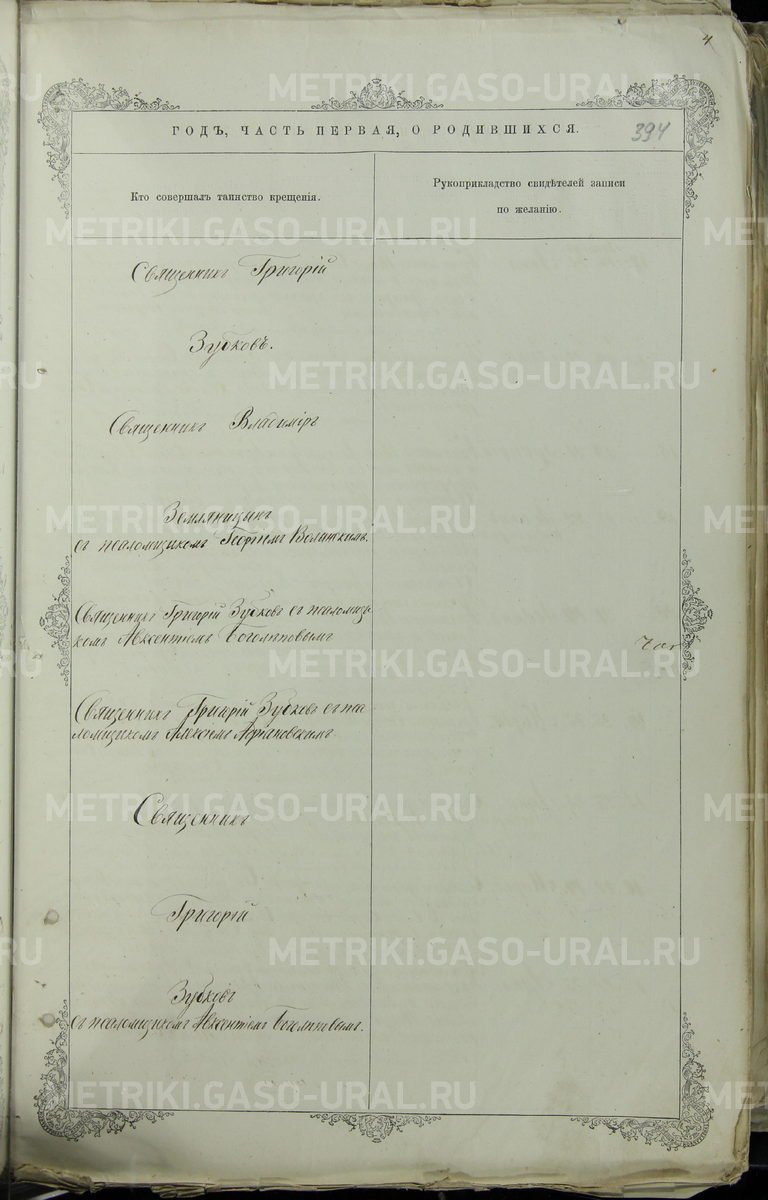 4
394
ГОДЪ, ЧАСТЬ ПЕРВАЯ, О РОДИВШИХСЯ.
Кто совершалъ таинство крещенія.
Рукоприкладство свидѣтелей записи
по желанію.
Священникъ Григорій
Зубковъ.
Священникъ Владиміръ
Земляницынъ
съ псаломщикомъ Георгіемъ
Священникъ Григорій Зубковъ съ псаломщи-
комъ Авксентіемъ Боголѣповымъ
Священникъ Григорій Зубковъ съ пса-
ломщикомъ
Священникъ
Григорій
Зубковъ
съ псаломщикомъ Авксентіемъ Боголѣповымъ.
METRIKI.GASO-URAL.RU